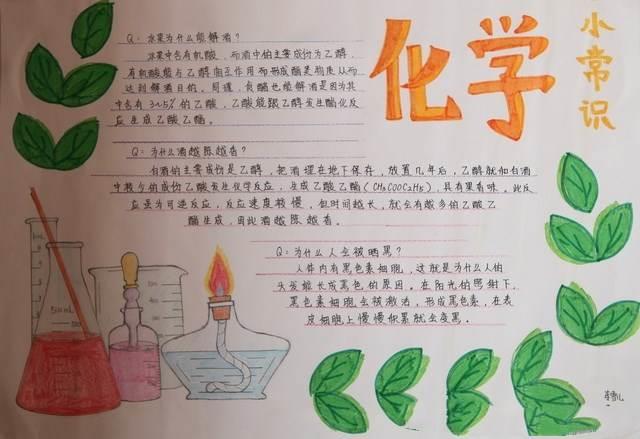 化学
小常识
Q:水果为什么能解酒?
水果中含有机酸,而酒中的主要成份为乙醇,
有机酸能与乙醇相互作用而形成酯类物质从而
达到解酒目的。同理,食醋也能解酒是因为其
中含有3~5%的乙酸,乙酸能跟乙醇发生酯化反
应生成乙酸乙酯。
Q:为什么酒越陈越香?
白酒的主要成份是乙醇,把酒埋在地下保存,放置几年后,乙醇就和白酒
中较少的成份乙酸发生化学反应,生成乙酸乙酯(CH3COOC2H5),具有果香味。此反
应虽为可逆反应,反应速度较慢,但时间越长,就会有越多的乙酸乙
酯生成,因此酒越陈越香。
Q:为什么人会被晒黑?
人体内有黑色素细胞,这就是为什么人的
头发能长成黑色的原因。在阳光的照射下,
黑色素细胞会被激活,形成黑色素,在表
皮细胞上慢慢积累就会变黑。
500mL